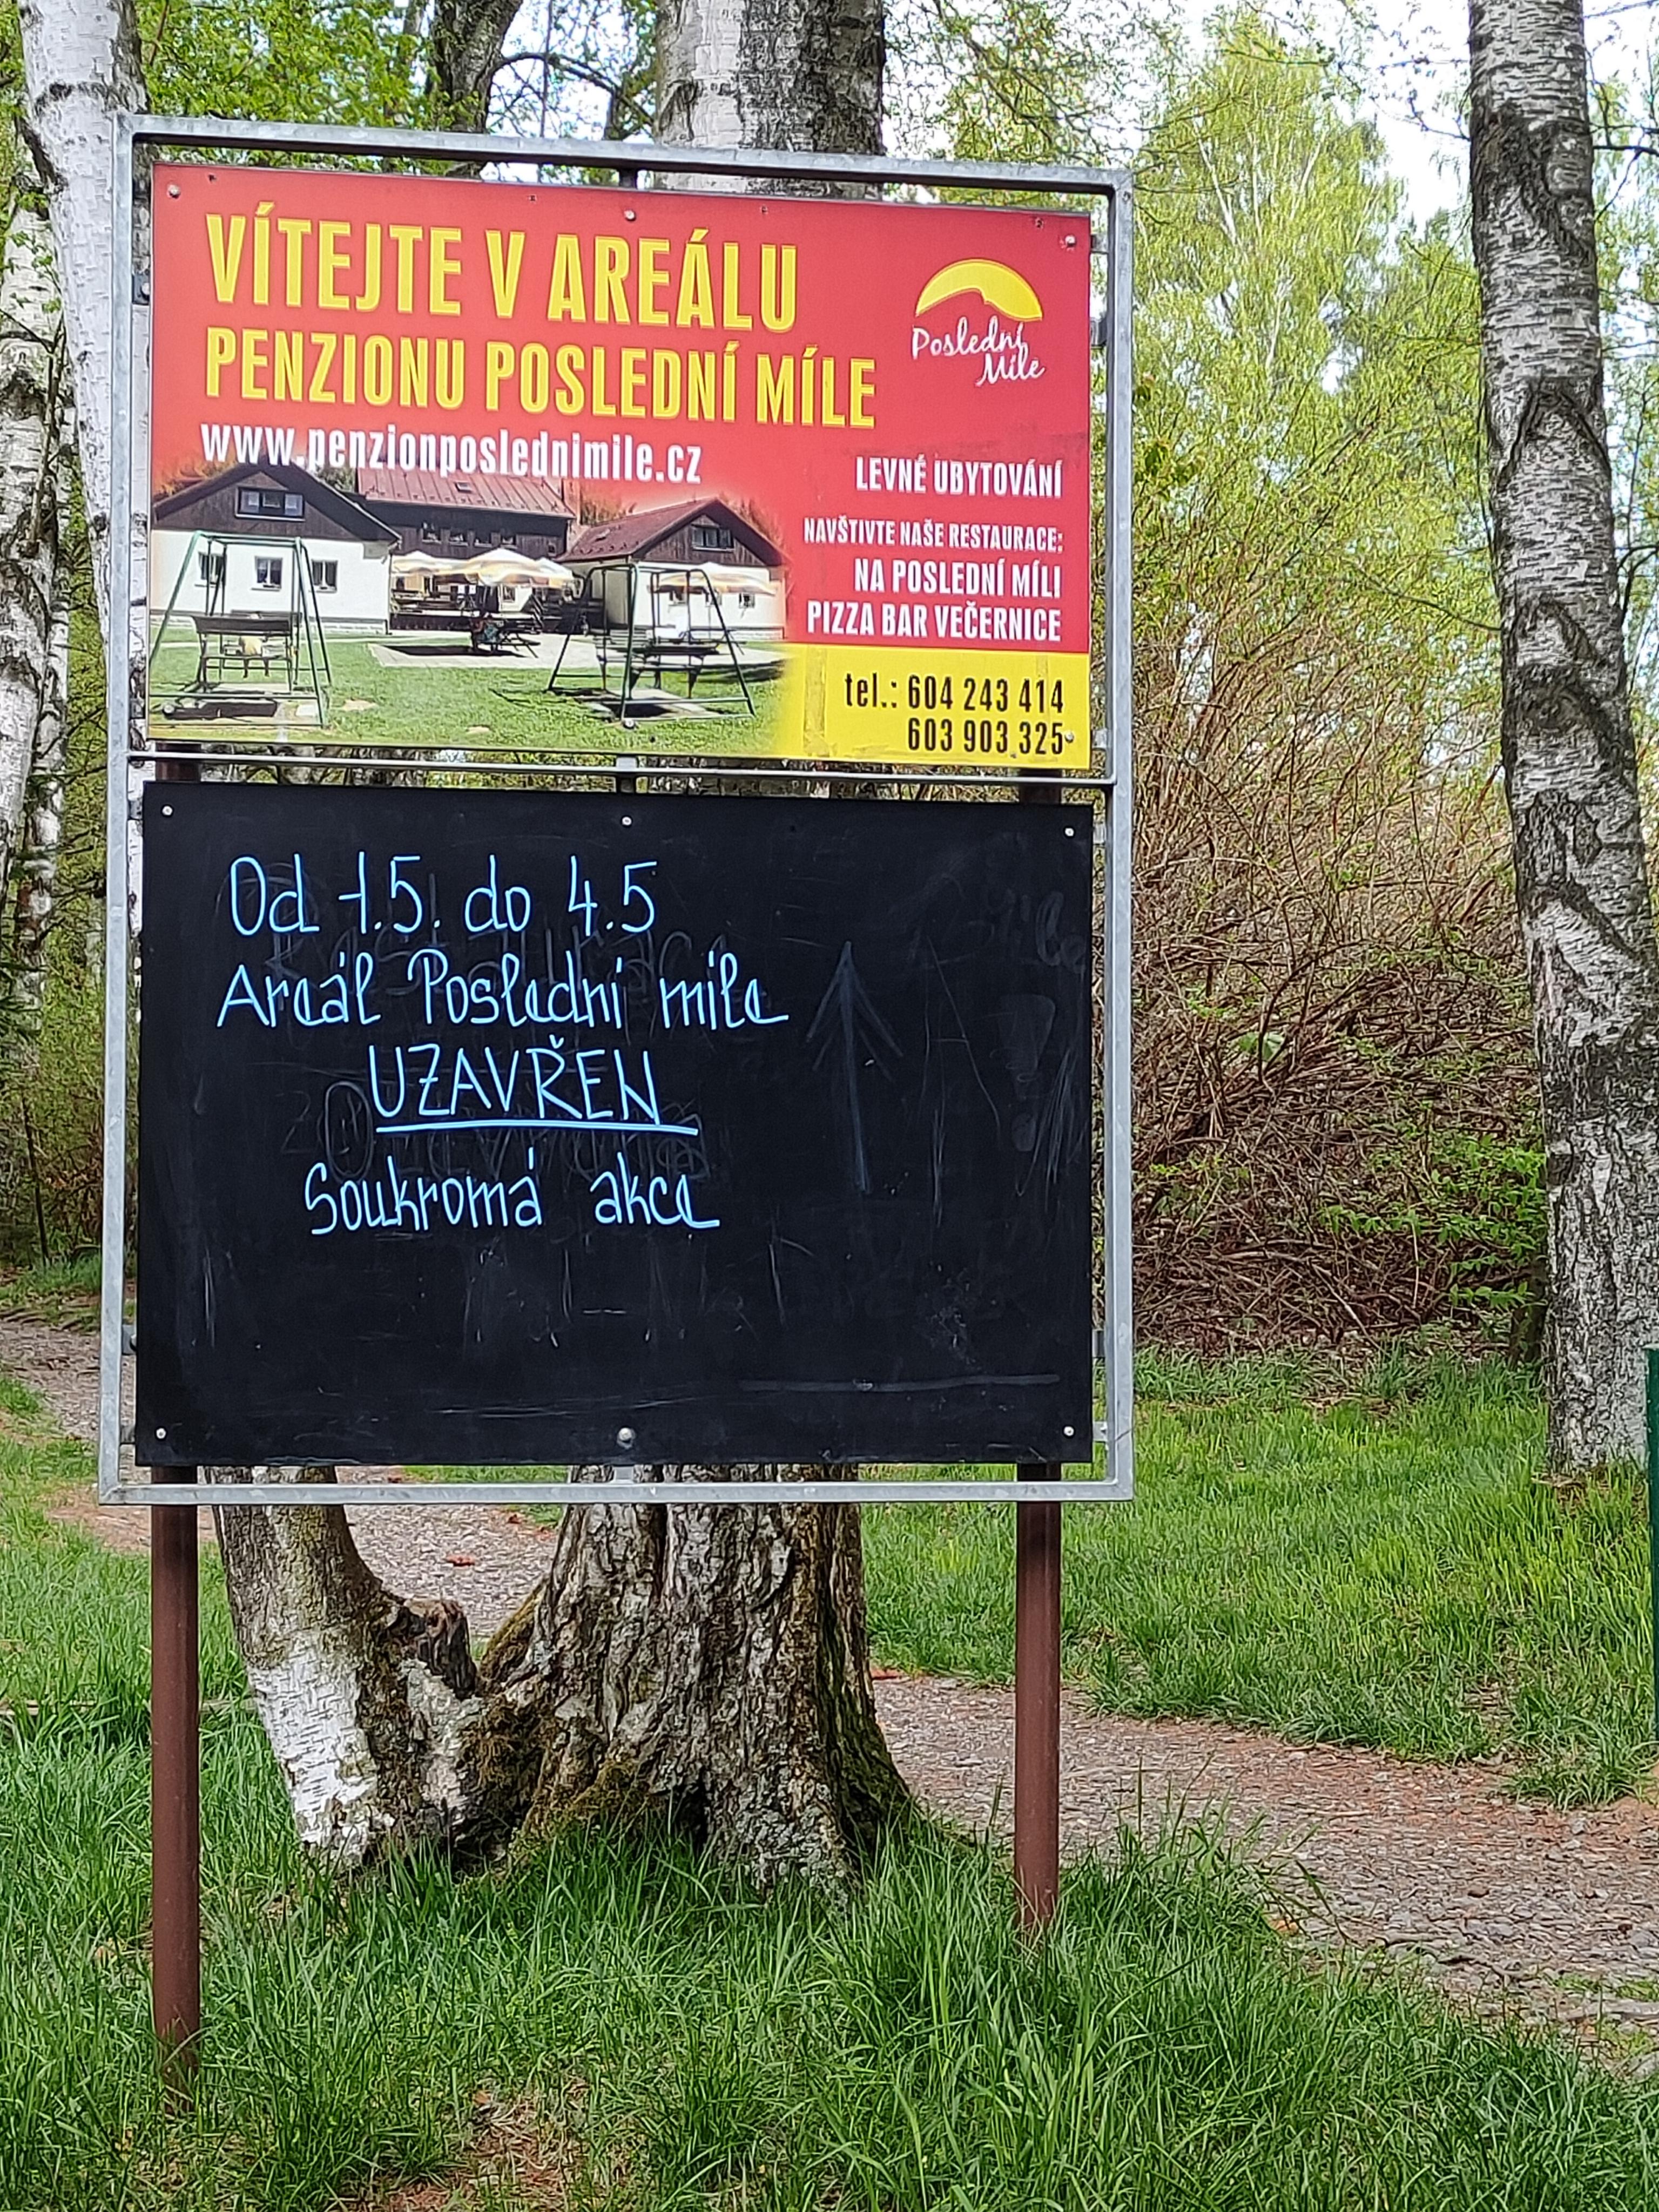 VÍTEJTE V AREÁLU
PENZIONU POSLEDNÍ MÍLE
www.penzionposlednimile.cz
Poslední
Míle
LEVNÉ UBYTOVÁNÍ
NAVŠTIVTE NAŠE RESTAURACE:
NA POSLEDNÍ MÍLI
PIZZA BAR VEČERNICE
tel.: 604 243 414
603 903 325
Od 1.5. do 4.5
Areál Poslední míle
UZAVŘEN
Soukromá akce